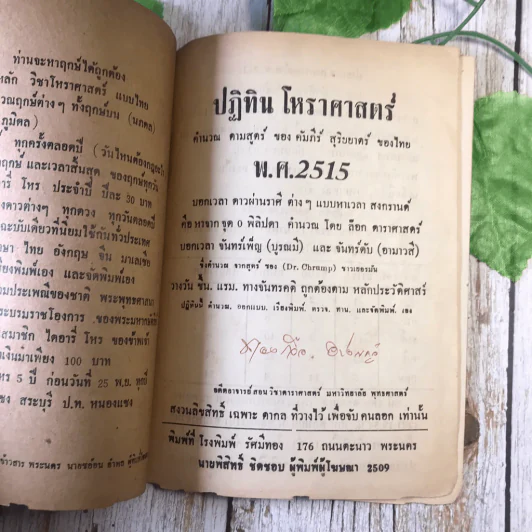 ท่านจะหาฤกษ์ได้ถูกต้อง
หลัก วิชาโหราศาสตร์ แบบไทย
ภูมิดล)
ทุกครั้งตลอดปี (วันไหนต้อง
ฤกษ์ และเวลาสิ้นสุด ของฤกษ์ทุกวัน
โหร ประจำปี ปีละ 30 บาท
ดาวต่างๆ ทุกดวง ทุกวันตลอดปี
ฉะบับเดียวที่นิยมใช้กันทั่วประเทศ
ไทย อังกฤษ จีน มาเลเซีย
พิมพ์เอง และจัดพิมพ์เอง
ประเพณีของชาติ พระพุทธศาสนา
สมาชิก ไดอารี่ โหร ของข้าพเจ้า
เงินมาเพียง 100 บาท
5 ปี ก่อนวันที่ 25 พ.ย. ทุกปี
สระบุรี ป.ท. หนองแซง
ปฏิทิน โหราศาสตร์
คำนวณ ตามสูตร์ ของ คัมภีร์ สุริยยาตร์ ของไทย
พ.ศ. 2515
บอกเวลา ดาวผ่านราศี ต่างๆ แบบหาเวลา สงกรานต์
คือ หาจาก จุด 0 พิลิปดา คำนวณ โดย ล็อก ดาราศาสตร์
บอกเวลา จันทร์เพ็ญ (บูรณมี) และ จันทร์ดับ (อามาวสี)
ซึ่งคำนวณ จากสูตร์ ของ (Dr. Chrump) ชาวเยอรมัน
วางวัน ขึ้น. แรม. ทางจันทรคติ ถูกต้องตาม หลักประวัติศาสตร์
ปฏิทินนี้ คำนวณ, ออกแบบ, เรียงพิมพ์, ตรวจ, ทาน, และจัดพิมพ์, เอง
อดีตอาจารย์ สอน วิชาดาราศาสตร์ มหาวิทยาลัย พุทธศาสตร์
สงวนลิขสิทธิ์ เฉพาะ ดากล ที่วางไว้ เพื่อจับ คนลอก เท่านั้น
พิมพ์ที่ โรงพิมพ์ รัศมีทอง 176 ถนนตะนาว พระนคร
นายพิสิทธิ์ ชิดชอบ ผู้พิมพ์ผู้โฆษณา 2509